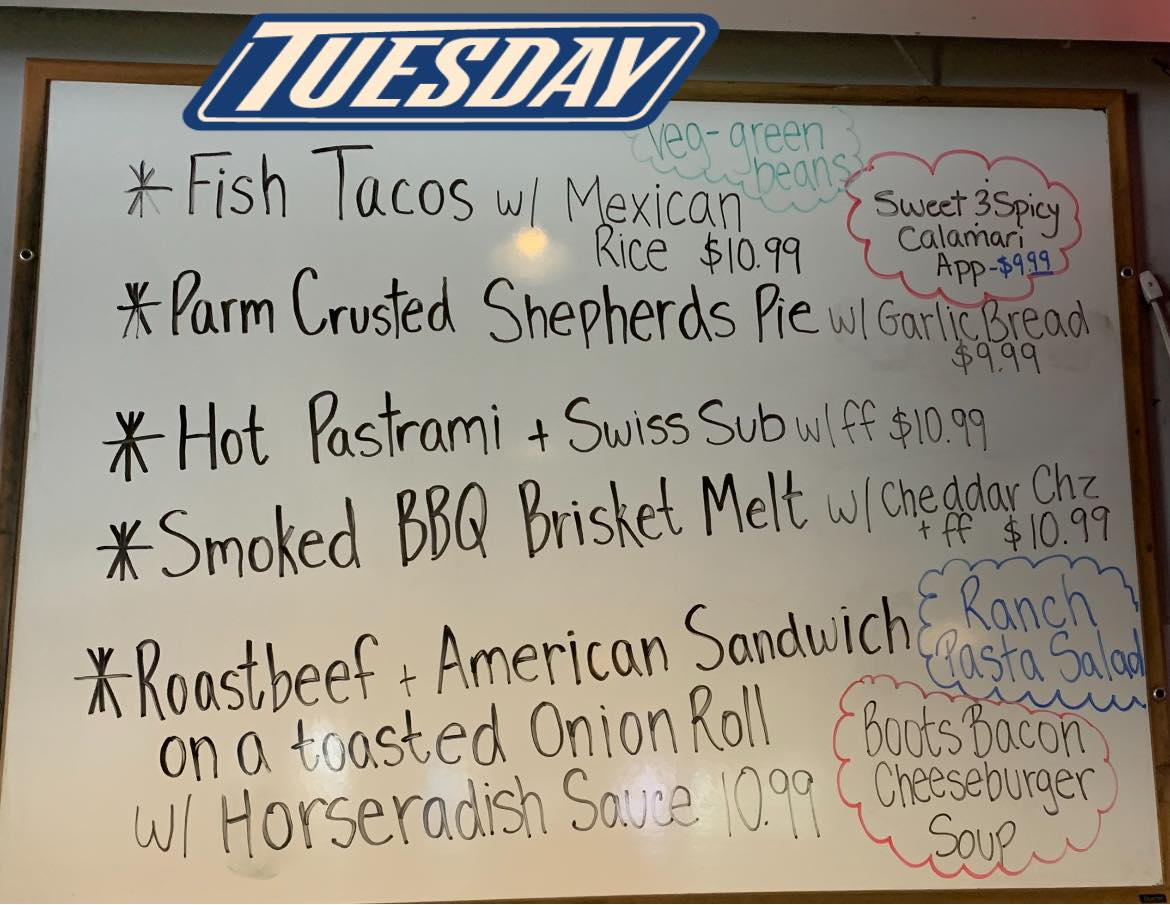 TUESDAY
Veg-green
beans
* Fish Tacos w/ Mexican
Rice $10.99
Sweet 3 Spicy
Calamari
App-$9.99
* Parm Crusted Shepherds Pie w/ Garlic Bread
$9.99
* Hot Pastrami + Swiss Sub w/ ff $10.99
* Smoked BBQ Brisket Melt w/ Cheddar Chz
+ ff $10.99
* Roastbeef + American Sandwich
on a toasted Onion Roll
w/ Horseradish Sauce 10.99
Ranch
Pasta Salad
Boots Bacon
Cheeseburger
Soup